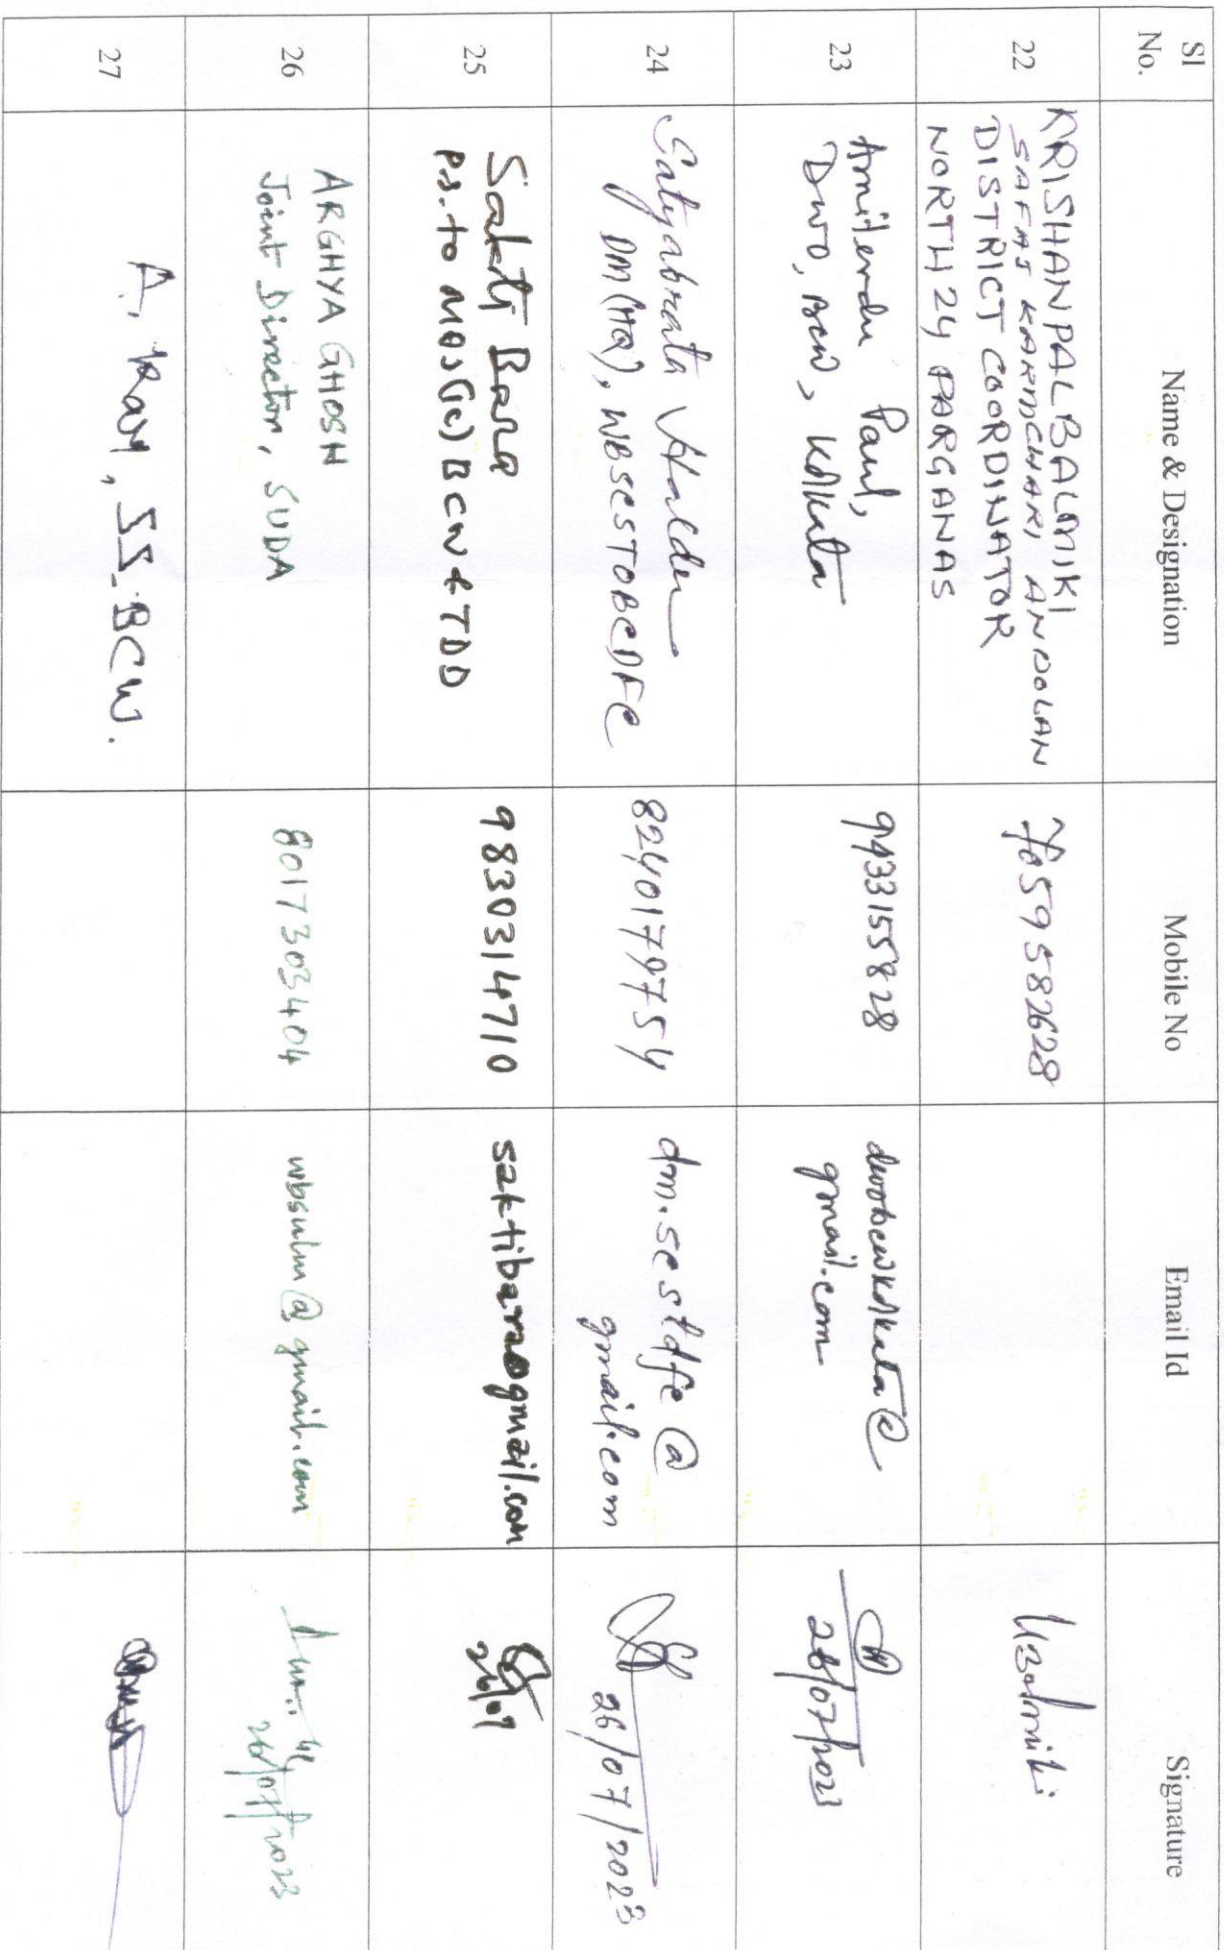 Sl No.
Name & Designation
Mobile No
Email Id
Signature
22
KRISHANPAL BALMIKI
SAFAI KARMCHARI ANDOLAN
DISTRICT COORDINATOR
NORTH 24 PARGANAS
7059582628
23
Amitendu Paul,
DWO, BCW, Kolkata
9433155828
dwobcwkolkata@
gmail.com
26/07/2023
24
Satyabrata Halder
DM (HQ), WBSCSTOBCDFC
8240179754
dm.scstdfc@
gmail.com
26/07/2023
25
Sakti Bara
P.S. to MOS(IC) BCW & TDD
9830314710
saktibara@gmail.com
26/07
26
ARGHYA GHOSH
Joint Director, SUDA
8017303404
wbsulm@gmail.com
26/07/2023
27
A. Ray, SS. BCW.